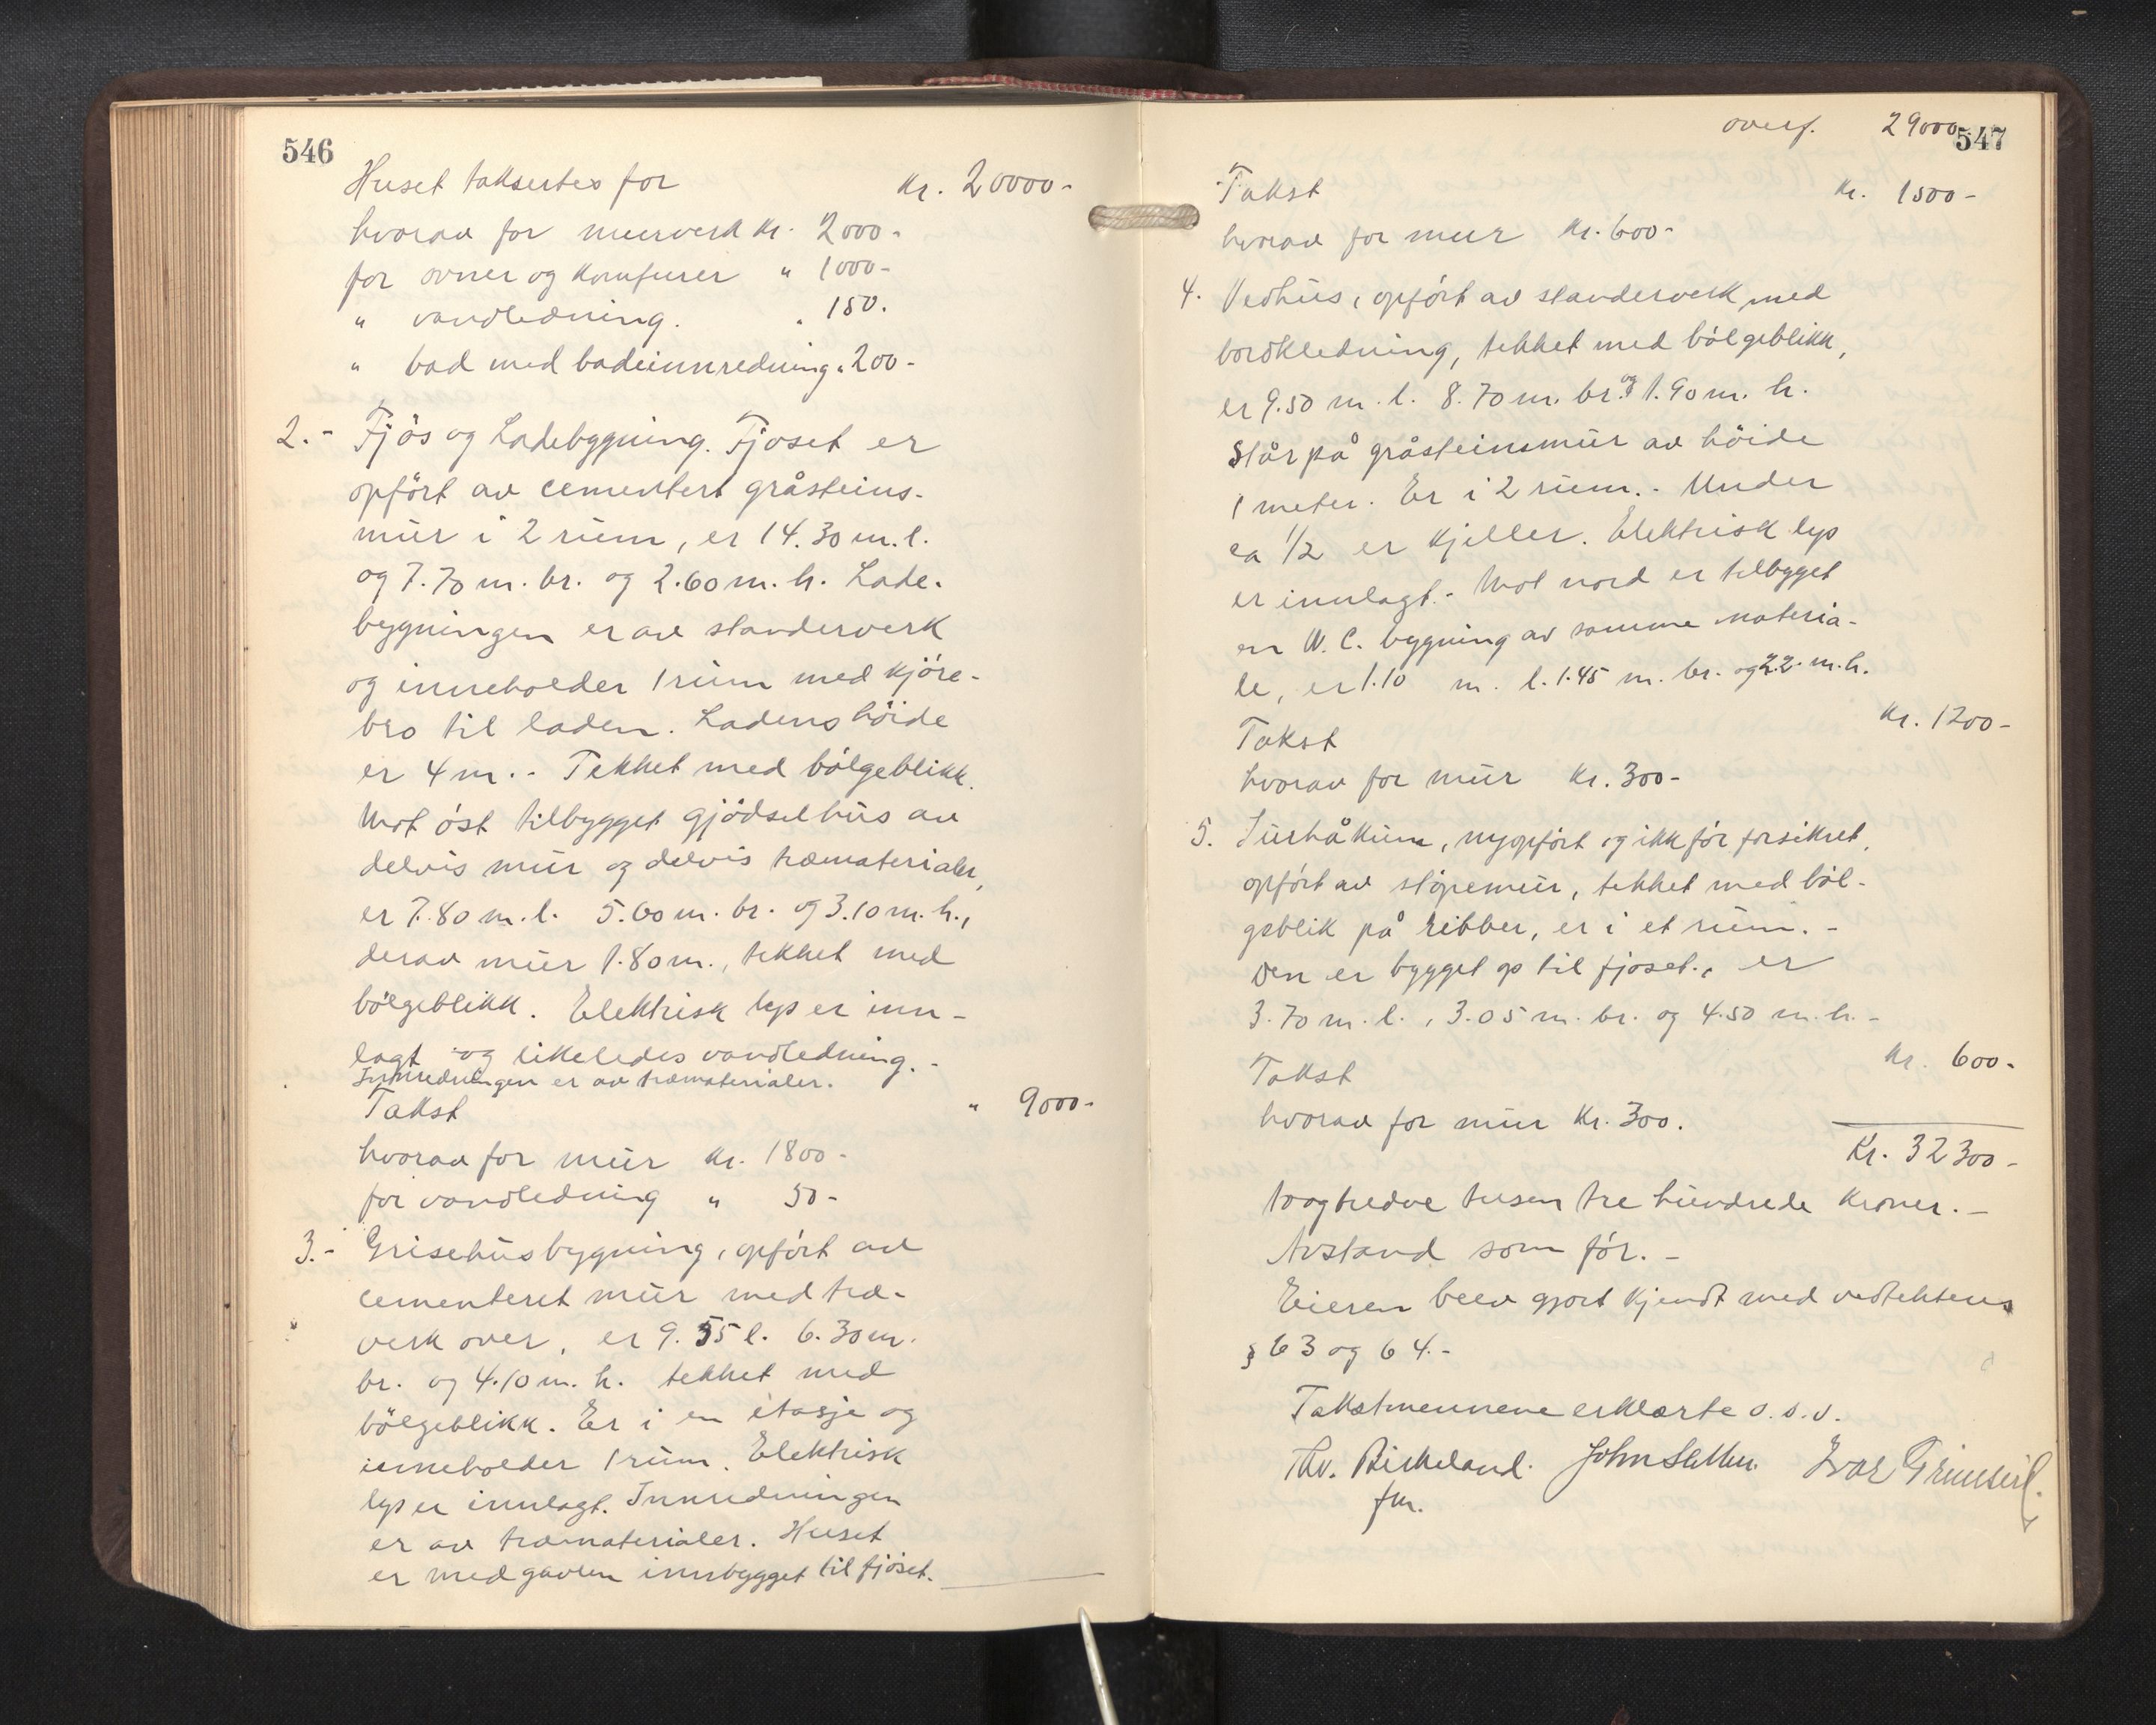 546
Huset takseres for Kr. 20000-
hvorav for murverk Kr. 2000-
for ovner og Komfurer " 1000-
" vandledning. " 150.
" bad med badeinnredning " 200-
2.- Fjös og Ladebygning. Fjöset er
opfört av cementert gråsteins-
mur i 2 rum, er 14.30 m. l.
og 7.70 m. br. og 2.60 m. h. Lade-
bygningen er av standerverk
og inneholder 1 rum med kjöre-
bro til laden. Ladens höide
er 4 m.- Tekket med bölgeblikk.
Mot öst tilbygget gjödselhus av
delvis mur og delvis træmaterialer,
er 7.80 m. l. 5.60 m. br. og 3.10 m. h.,
derav mur 1.80 m., tekket med
bölgeblikk. Elektrisk lys er inn-
lagt og likeledes vandledning.-
Innredningen er av træmaterialer.
Takst " 9000-
hvorav for mur Kr. 1800-
for vandledning " 50-
3.- Grisehusbygning, opfört av
cementeret mur med træ-
verk over, er 9.55 l. 6.30 m.
br. og 4.10 m. h. tekket med
bölgeblikk. Er i en etasje og
inneholder 1 rum. Elektrisk
lys er innlagt. Innredningen
er av træmaterialer. Huset
er med gavlen innbygget til fjöset.
overf. 29000
547
Takst Kr. 1500-
hvorav for mur Kr. 600-
4. Vedhus, opfört av standerverk med
bordkledning, tekket med bölgeblikk,
er 9.50 m. l. 8.70 m. br. og 1.90 m. h.
Står på gråsteinsmur av höide
1 meter. Er i 2 rum.- Under
ca 1/2 er kjeller. Elektrisk lys
er innlagt.- Mot nord er tilbygget
en W. C. bygning av samme materia-
le, er 1.10 m. l. 1.45 m. br. og 2.2 m. h.
Kr. 1200-
Takst
hvorav for mur Kr. 300-
5. Surhåkum, nyopfört og ikk för forsikret,
opfört av stöpemur, tekket med böl-
geblik på ribber, er i et rum.-
Den er bygget op til fjöset., er
3.70 m. l., 3.05 m. br. og 4.50 m. h.-
Takst Kr. 600-
hvorav for mur Kr. 300.
Kr. 32300-
toogtredve tusen tre hundrede Kroner.-
Avstand som för.-
Eieren blev gjort kjendt med vedtektens
§ 63 og 64.-
Takstmennene erklærte o. s. v.
Thv. Birkeland. John Ivar
fm.